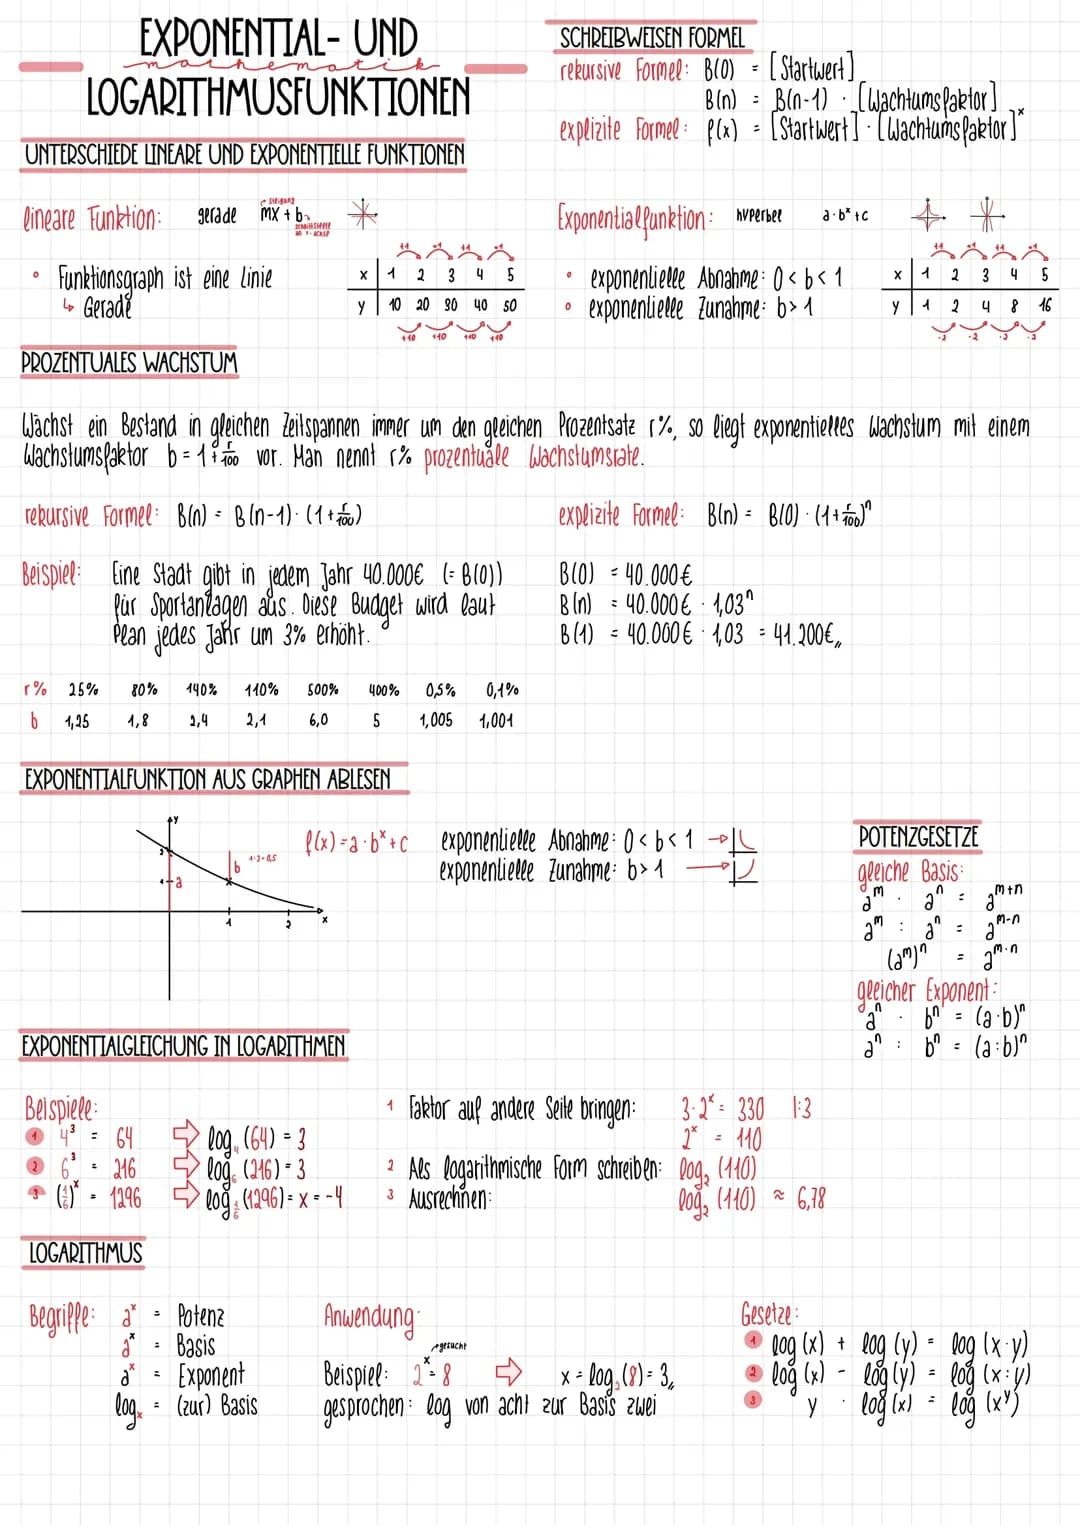 EXPONENTIAL- UND
mathematik
LOGARITHMUSFUNKTIONEN
SCHREIBWEISEN FORMEL
rekursive Formel: B(0) = [Startwert]
B(n) = B(n-1) · [Wachtumsfaktor]
explizite Formel: f(x) = [Startwert] · [Wachtumsfaktor]ˣ
UNTERSCHIEDE LINEARE UND EXPONENTIELLE FUNKTIONEN
lineare Funktion: gerade mx + b
Steigung
Schnittstelle
an y-Achse
Funktionsgraph ist eine Linie
↳ Gerade
+1 +1 +1 +1
x 1 2 3 4 5
y 10 20 30 40 50
+10 +10 +10 +10
Exponentialfunktion: hyperbel a·bˣ+c
• exponentielle Abnahme: 0<b<1
• exponentielle Zunahme: b>1
+1 +1 +1 +1
x 1 2 3 4 5
y 1 2 4 8 16
·2 ·2 ·2 ·2
PROZENTUALES WACHSTUM
Wächst ein Bestand in gleichen Zeitspannen immer um den gleichen Prozentsatz r%, so liegt exponentielles Wachstum mit einem
Wachstumsfaktor b = 1 + r/100 vor. Man nennt r% prozentuale Wachstumsrate.
rekursive Formel: B(n) = B(n-1) · (1+r/100)
explizite Formel: B(n) = B(0) · (1+r/100)ⁿ
Beispiel: Eine Stadt gibt in jedem Jahr 40.000€ (= B(0))
für Sportanlagen aus. Diese Budget wird laut
Plan jedes Jahr um 3% erhöht.
B(0) = 40.000€
B(n) = 40.000€ · 1,03ⁿ
B(1) = 40.000€ · 1,03 = 41.200€
r% 25% 80% 140% 110% 500% 400% 0,5% 0,1%
b 1,25 1,8 2,4 2,1 6,0 5 1,005 1,001
EXPONENTIALFUNKTION AUS GRAPHEN ABLESEN
y
2
1
a
b
1:2=0,5
1
2
x
f(x)=a·bˣ+c
exponentielle Abnahme: 0<b<1 →
exponentielle Zunahme: b>1 →
POTENZGESETZE
gleiche Basis:
aᵐ · aⁿ = aᵐ⁺ⁿ
aᵐ : aⁿ = aᵐ⁻ⁿ
(aᵐ)ⁿ = aᵐ·ⁿ
gleicher Exponent:
aⁿ · bⁿ = (a·b)ⁿ
aⁿ : bⁿ = (a:b)ⁿ
EXPONENTIALGLEICHUNG IN LOGARITHMEN
Beispiele:
1 4³ = 64 ⇨ log₄(64) = 3
2 6³ = 216 ⇨ log₆(216) = 3
3 (1/6)ˣ = 1296 ⇨ log 1/6 (1296) = x = -4
1 Faktor auf andere Seite bringen: 3·2ˣ = 330 |:3
2ˣ = 110
2 Als logarithmische Form schreiben: log₂(110)
3 Ausrechnen: log₂(110) ≈ 6,78
LOGARITHMUS
Begriffe: aˣ = Potenz
aˣ = Basis
aˣ = Exponent
logₓ = (zur) Basis
Anwendung:
gesucht
Beispiel: 2ˣ = 8 ⇨ x = log₂(8) = 3
gesprochen: log von acht zur Basis zwei
Gesetze:
1 log(x) + log(y) = log(x·y)
2 log(x) - log(y) = log(x:y)
3 y · log(x) = log(xʸ)